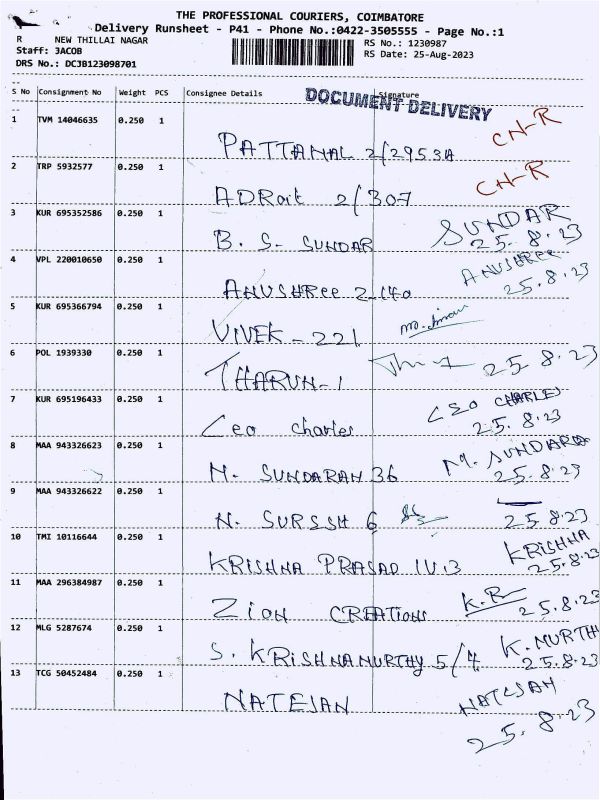 THE PROFESSIONAL COURIERS, COIMBATORE
Delivery Runsheet - P41 - Phone No.:0422-3505555 - Page No.:1
R NEW THILLAI NAGAR RS No.: 1230987
Staff: JACOB RS Date: 25-Aug-2023
DRS No.: DCJB123098701
S No Consignment No Weight PCS Consignee Details Signature
DOCUMENT DELIVERY
1 TVM 14046635 0.250 1 CN-R
PATTANAL 2/2953A
2 TRP 5932577 0.250 1 CN-R
ADRoit 2/307
3 KUR 695352586 0.250 1 SUNDAR
B. S- SUNDAR 25.8.23
4 VPL 220010650 0.250 1 ANUSHREE
ANUSHRee 2-140 25.8.23
5 KUR 695366794 0.250 1
VIVEK - 221
6 POL 1939330 0.250 1 25.8.23
THARUN-1
7 KUR 695196433 0.250 1 LEO CHARLES
Leo charles 25.8.23
8 MAA 943326623 0.250 1 M. SUNDARA
N. SUNDARAN 36 25.8.23
9 MAA 943326622 0.250 1
N. SURSSH 6 25.8.23
10 TMI 10116644 0.250 1 KRISHNA
KRISHNA PRASAD IV.3 25.8.23
11 MAA 296384987 0.250 1 K.R
ZION CREATIONS 25.8.23
12 MLG 5287674 0.250 1 K. MURTHY
S. KRISHNAMURTHY 5/4 25.8.23
13 TCG 50452484 0.250 1 NATESAN
NATESAN 25.8.23